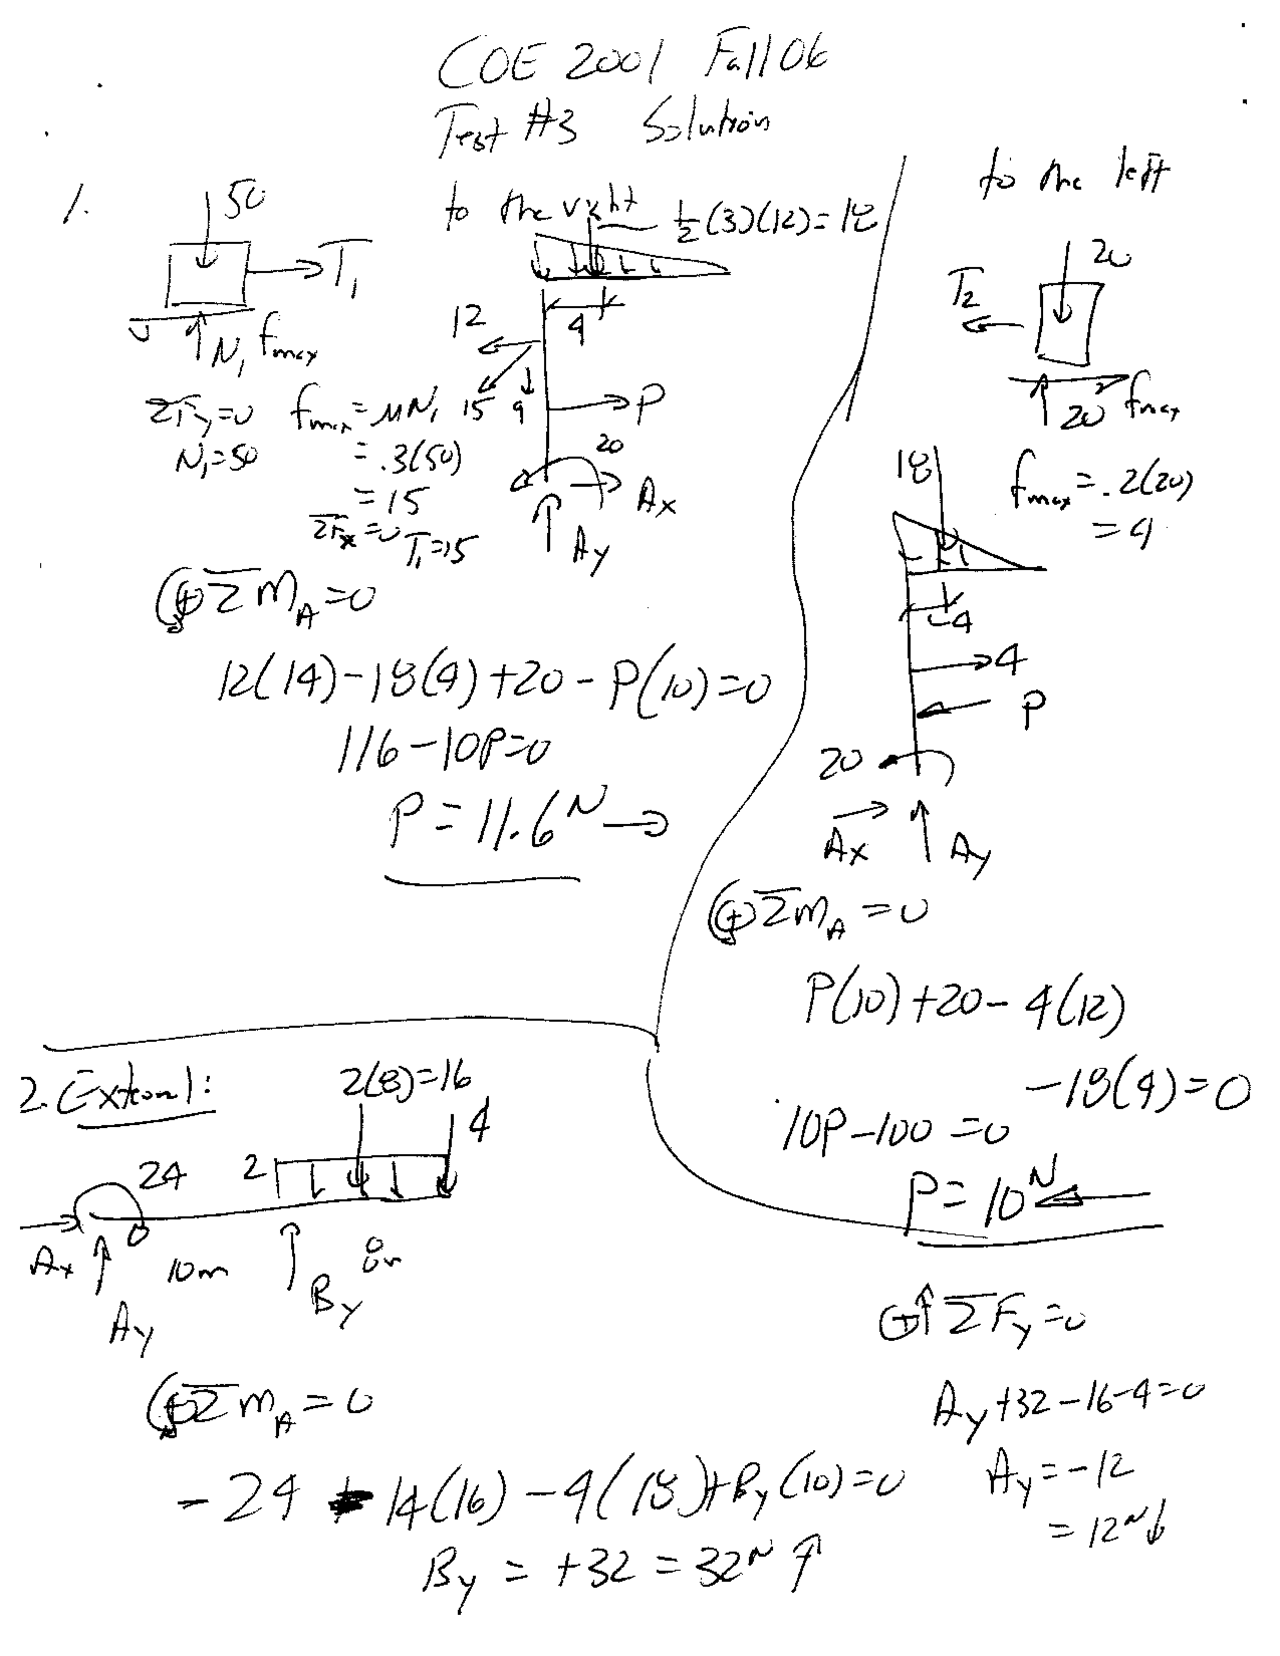 COE 2001 Fall 06
Test #3 Solution
1.
50
T₁
N₁ fmax
ΣFy=0
N₁=50
fmax=μN₁
=.3(50)
=15
ΣFx=0 T₁=15
to the right
½(3)(12)=18
4
12
15 9
P
20
Ax
Ay
ΣMA=0
12(14)-18(4)+20-P(10)=0
116-10P=0
P=11.6N→
to the left
20
T2
20 fmax
fmax=.2(20)
=4
18
4
4
P
20
Ax Ay
ΣMA=0
P(10)+20-4(12)
-18(4)=0
10P-100=0
P=10N←
2. External:
2(8)=16
4
24
2
Ax
Ay
10m
By
8m
ΣMA=0
-24 - 14(16)-4(18)+By(10)=0
By = +32 = 32N ↑
+↑ΣFy=0
Ay+32-16-4=0
Ay=-12
=12N↓